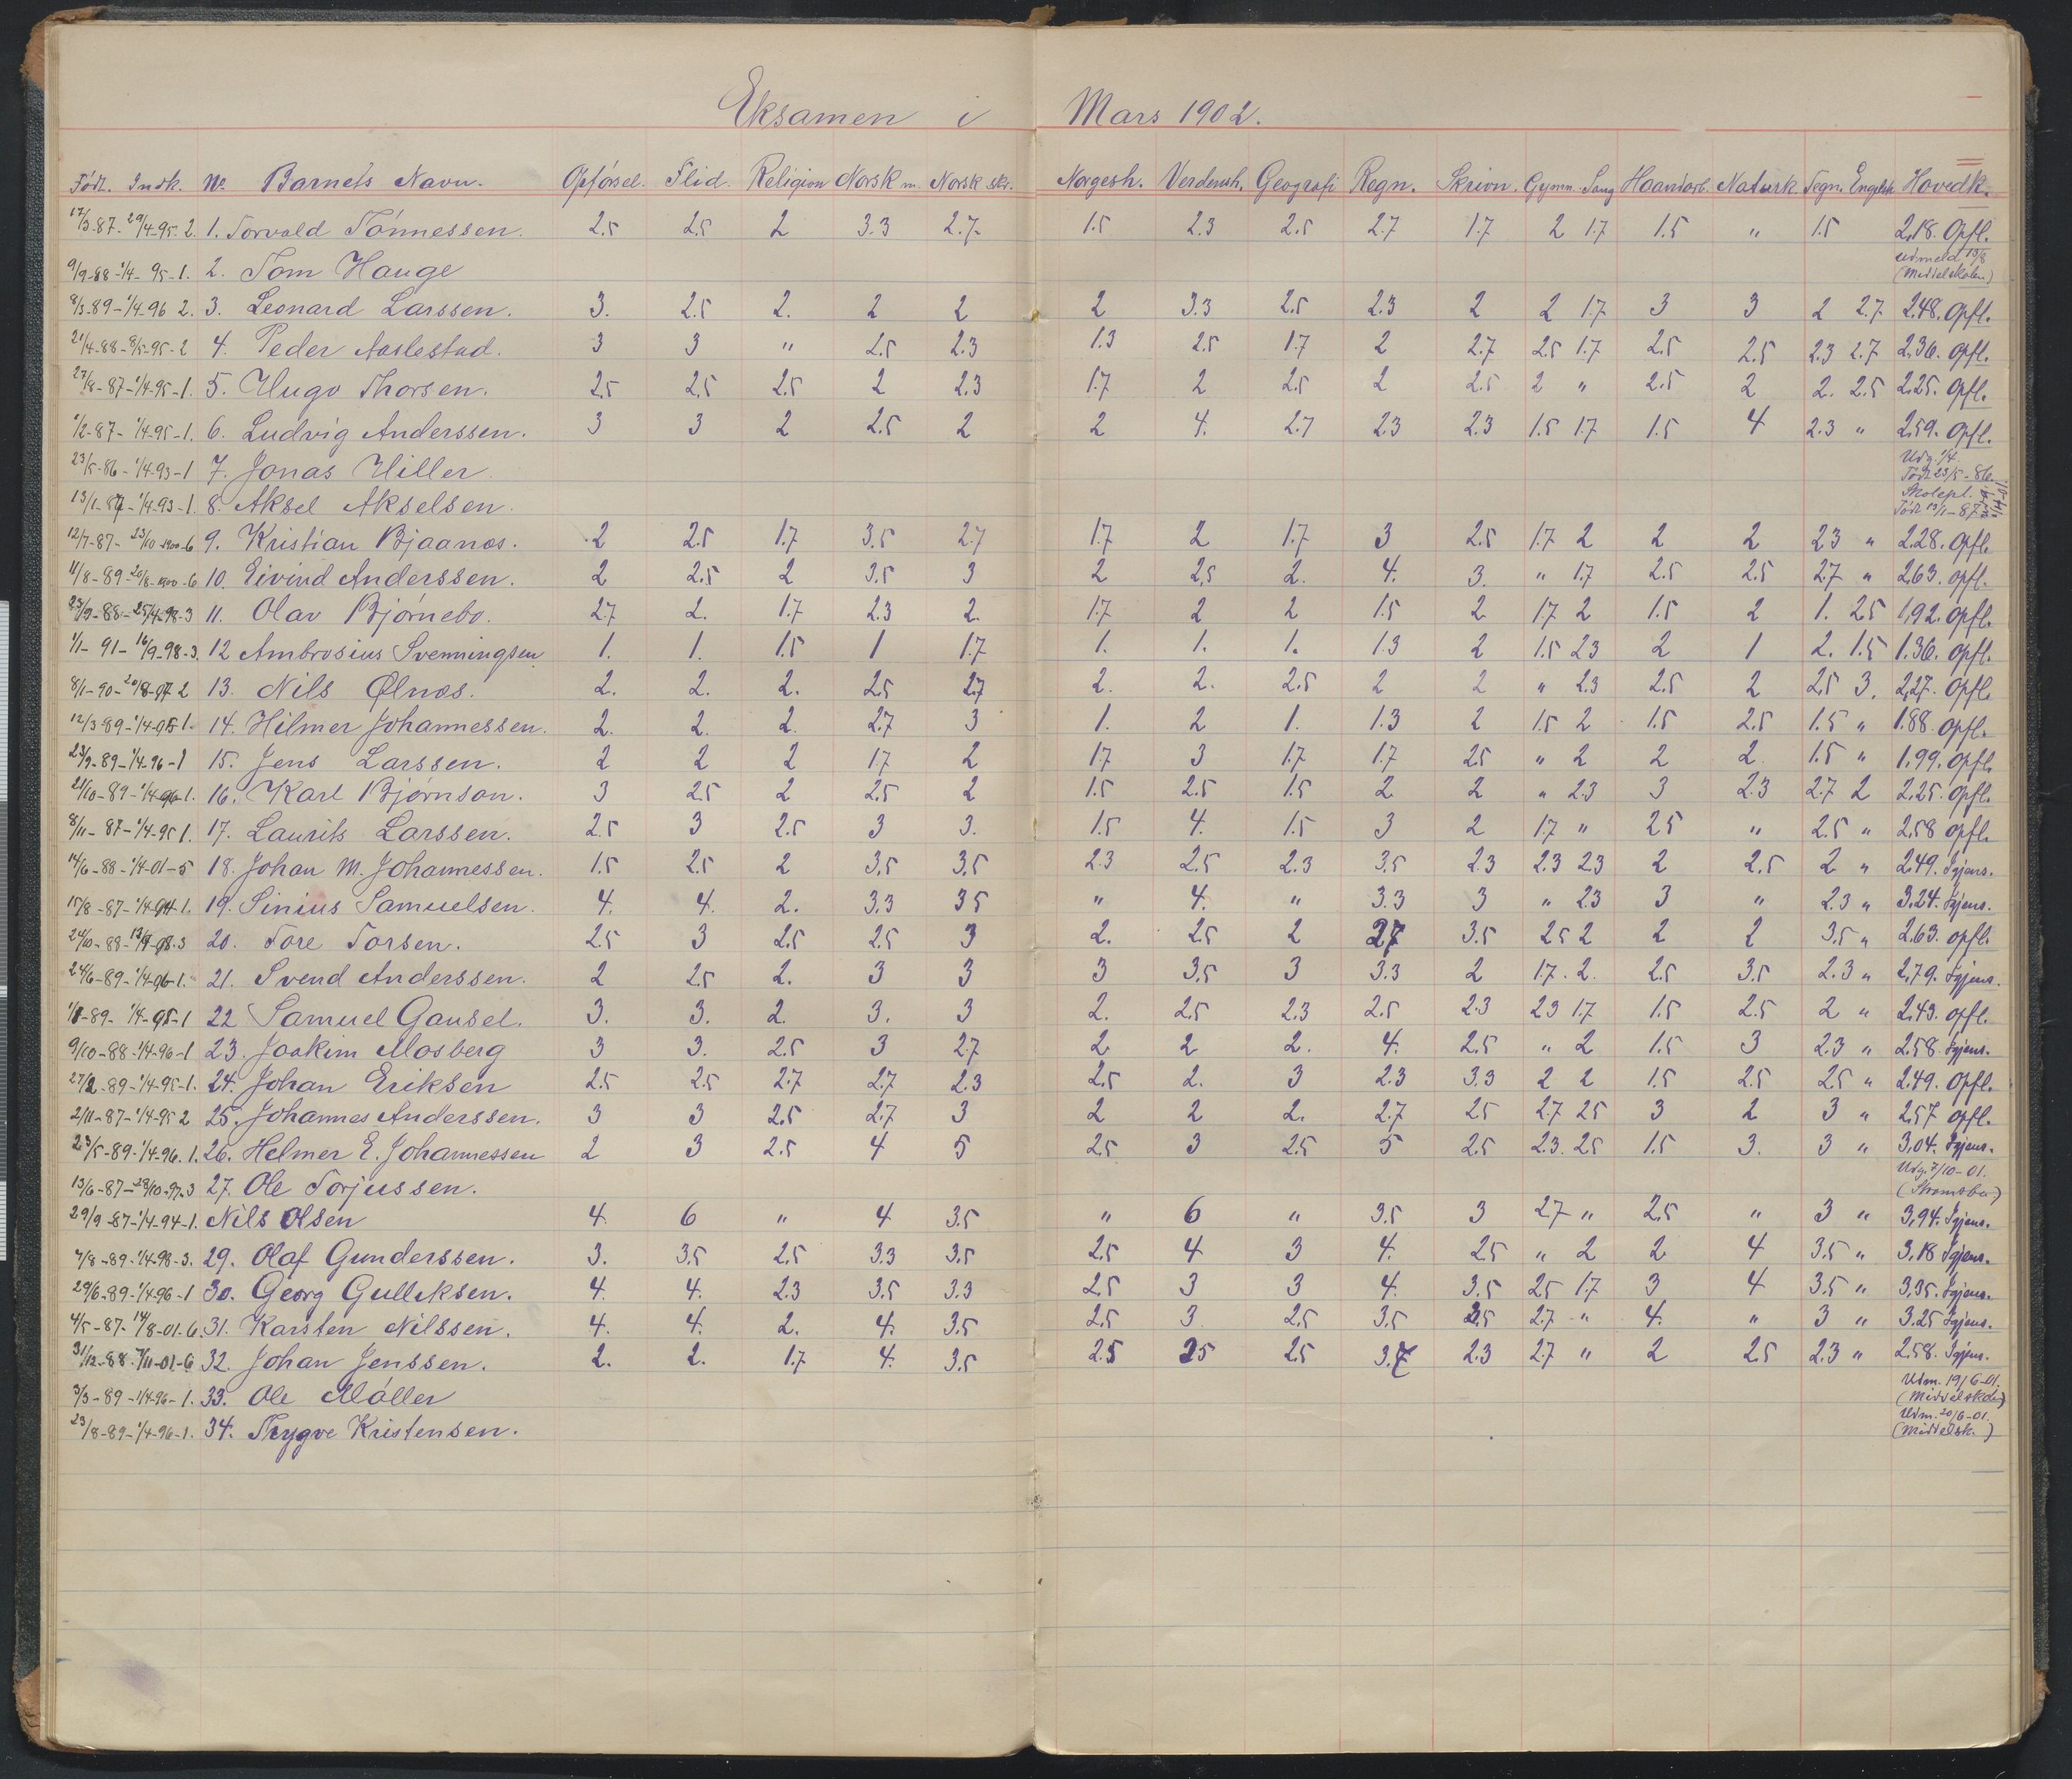 Eksamen i Mars 1902.
Født. Indk. No Barnets Navn. Opførsel. Flid. Religion Norsk m. Norsk skr. Norgesh. Verdensh. Geografi Regn. Skrivn. Gymn. Sang Haandarb. Naturk. Tegn. Engelsk Hovedk.
17/3-87. 29/4-95. 2. 1. Torvald Tønnessen. 2.5 2.5 2 3.3 2.7. 1.5 2.3 2.5 2.7 1.7 2 1.7 1.5 " 1.5 2,18. Opfl.
9/9-88-1/4-95-1. 2. Tom Hauge udmeld 13/8
(Middelskolen)
8/3-89-1/4-96 2. 3. Leonard Larssen. 3. 2.5 2. 2 2 2 3.3 2.5 2.3 2 2 1.7 3 3 2 2.7 2.48. Opfl.
21/4-88-8/5-95-2 4. Peder Aaslestad. 3 3 " 2.5 2.3 1.3 2.5 1.7 2 2.7 2.5 1.7 2.5 2.5 2.3 2.7 2,36. opfl.
27/8-87-1/4-95-1. 5. Hugo Thorsen. 2.5 2.5 2.5 2 2.3 1.7 2 2.5 2 2.5 2 " 2.5 2 2. 2.5 2,25. Opfl.
1/2-87-1/4-95-1. 6. Ludvig Anderssen. 3 3 2 2.5 2 2 4. 2.7 2.3 2.3 1.5 1.7 1.5 4 2.3 " 2,59. Opfl.
23/5-86-1/4-93-1 7. Jonas Hiller. Udg. 1/4.
Født 23/5-86.
13/1-87-1/4-93-1. 8. Aksel Akselsen. Skolepl.
Født 13/1-87
12/7-87-23/10-1900-6 9. Kristian Bjaanæs. 2 2.5 1.7 3.5 2.7 1.7 2 1.7 3 2.5 1.7 2 2 2 2.3 " 2.28. Opfl.
11/8-89-20/8-1900-6 10. Eivind Anderssen. 2 2.5 2 3.5 3 2 2,5 2. 4. 3. " 1.7 2.5 2.5 2.7 " 2.63. opfl.
23/9-88-25/4-98-3 11. Olav Bjørnebo. 2.7 2. 1.7 2.3 2. 1.7 2 2 1.5 2 1.7 2 1.5 2 1. 2.5 1,92. Opfl.
1/1-91-16/9-98-3. 12 Ambrosius Svenningsen 1. 1. 1.5 1 1.7 1. 1. 1. 1.3 2 1.5 2.3 2 1 2. 1.5 1.36. opfl.
8/1-90-20/8-97 2 13. Nils Ølnæs. 2. 2. 2. 2.5 2.7 2. 2. 2.5 2 2 " 2.3 2.5 2 2.5 3. 2,27. Opfl.
12/3-89-1/4-95-1. 14. Hilmer Johannessen. 2. 2. 2. 2.7 3 1. 2 1. 1.3 2 1.5 2 1.5 2.5 1.5 " 1.88. opfl.
23/9-89-1/4-96-1 15. Jens Larssen. 2 2 2 1.7 2 1.7 3 1.7 1.7 2.5 " 2 2 2. 1.5 " 1,99. Opfl.
21/10-89-1/4-96-1. 16. Karl Bjørnson. 3 2.5 2 2.5 2 1.5 2.5 1.5 2 2 " 2.3 3 2.3 2.7 2 2,25. Opfl.
8/11-87-1/4-95 1. 17. Laurits Larssen. 2.5 3 2.5 3 3. 1.5 4. 1.5 3 2 1.7 " 2.5 " 2.5 " 2,58 opfl.
14/6-88-1/4-01-5 18. Johan M. Johannessen. 1.5 2.5 2 3,5 3,5 2.3 2.5 2.3 3.5 2.3 2.3 2.3 2 2.5 2 " 2.49. Igjens.
15/8-87-1/4-94-1. 19. Sinius Samuelsen. 4. 4. 2. 3.3 3.5 " 4. " 3.3 3 " 2.3 3 " 2.3 " 3,24. Igjens.
24/10-88-13/9-98.3 20. Tore Torsen. 2.5 3 2.5 2.5 3 2. 2.5 2 2.7 3.5 2.5 2 2 2 3.5 " 2.63. opfl.
24/6-89-1/4-96-1. 21. Svend Anderssen. 2 2.5 2. 3 3 3 3.5 3 3.3 2 1.7. 2. 2.5 3.5 2.3 " 2,79. Igjens.
1/11-89-1/4-95-1 22 Samuel Gausel. 3. 3. 2. 3. 3 2. 2.5 2.3 2.5 2.3 2.3 1.7 1.5 2.5 2 " 2,43. opfl.
9/10-88-1/4-96-1 23. Joakim Mosberg 3 3. 2.5 3 2.7 2 2 2. 4. 2.5 " 2 1.5 3 2.3 " 2.58. Igjens.
27/2-89-1/4-95-1. 24. Johan Eriksen 2.5 2.5 2.7 2.7 2.3 2,5 2. 3 2.3 3.3 2 2 1.5 2.5 2.5 " 2,49. Opfl.
2/11-87-1/4-95 2 25. Johannes Anderssen. 3 3 2.5 2.7 3 2 2 2. 2.7 2.5 2.7 2.5 3 2 3 " 2,57 opfl.
23/5-89-1/4-96. 1. 26. Helmer E. Johannessen 2 3 2.5 4 5 2.5 3 2.5 5 2.5 2.3. 2.5 1.5 3. 3 " 3,04. Igjens.
13/6-87-28/10-97.3 27. Ole Torjussen. Udg. 7/10-01.
(Strømsbu)
29/9-87-1/4-94-1. Nils Olsen 4. 6 " 4 3.5 " 6 " 3.5 3 2.7 " 2.5 " 3 " 3,94. Igjens.
7/8-89-1/4-98-3. 29. Olaf Gunderssen. 3. 3.5 2.5 3.3 3.5 2.5 4 3 4. 2.5 " 2 2 4 3.5 " 3,18 Igjens.
29/6-89-1/4-96-1 30. Georg Gulleksen. 4. 4. 2.3 3.5 3.3 2.5 3 3 4. 3.5 2.5 1.7 3 4 3.5 " 3,35. Igjens.
4/5-87-14/8-01.6. 31. Karsten Nilssen. 4. 4. 2. 4. 3.5 2.5 3 2.5 3.5 2.5 2.7 " 4. " 3 " 3.25 Igjens.
31/12-88-7/11-01-6 32. Johan Jenssen. 2. 2. 1.7 4. 3.5 2.5 2.5 2.5 3.7 2.3 2.7 " 2 2.5 2.3 " 2.58. Igjens.
3/3-89-1/4-96-1. 33. Ole Møller Udm. 19/6-01.
(Middelskolen)
23/8-89-1/4-96-1. 34. Trygve Kristensen. Udm. 20/6-01.
(Middelsk.)